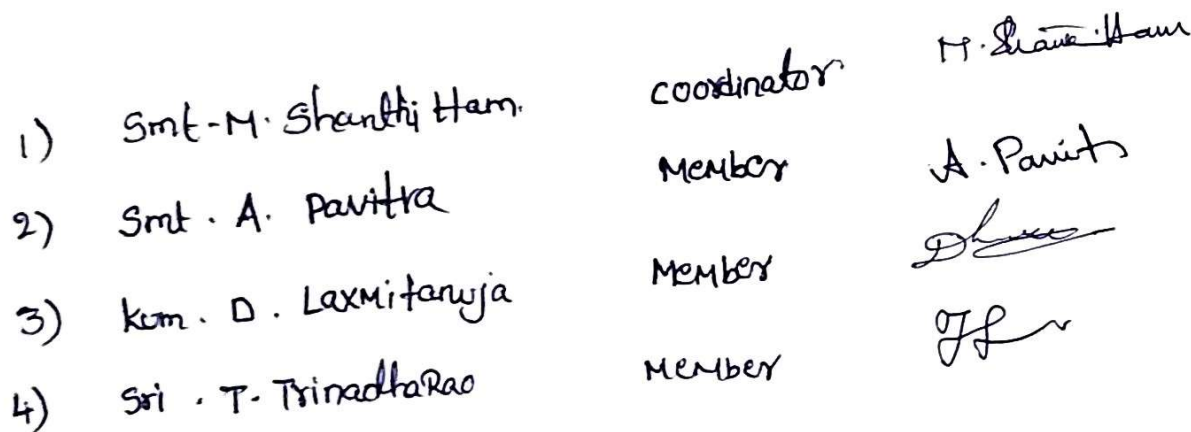 1) Smt-M. Shanthi Ham. coordinator
2) Smt. A. Pavitra Member A. Pavit
3) kum. D. Laxmitanuja Member
4) Sri. T. TrinadhaRao Member